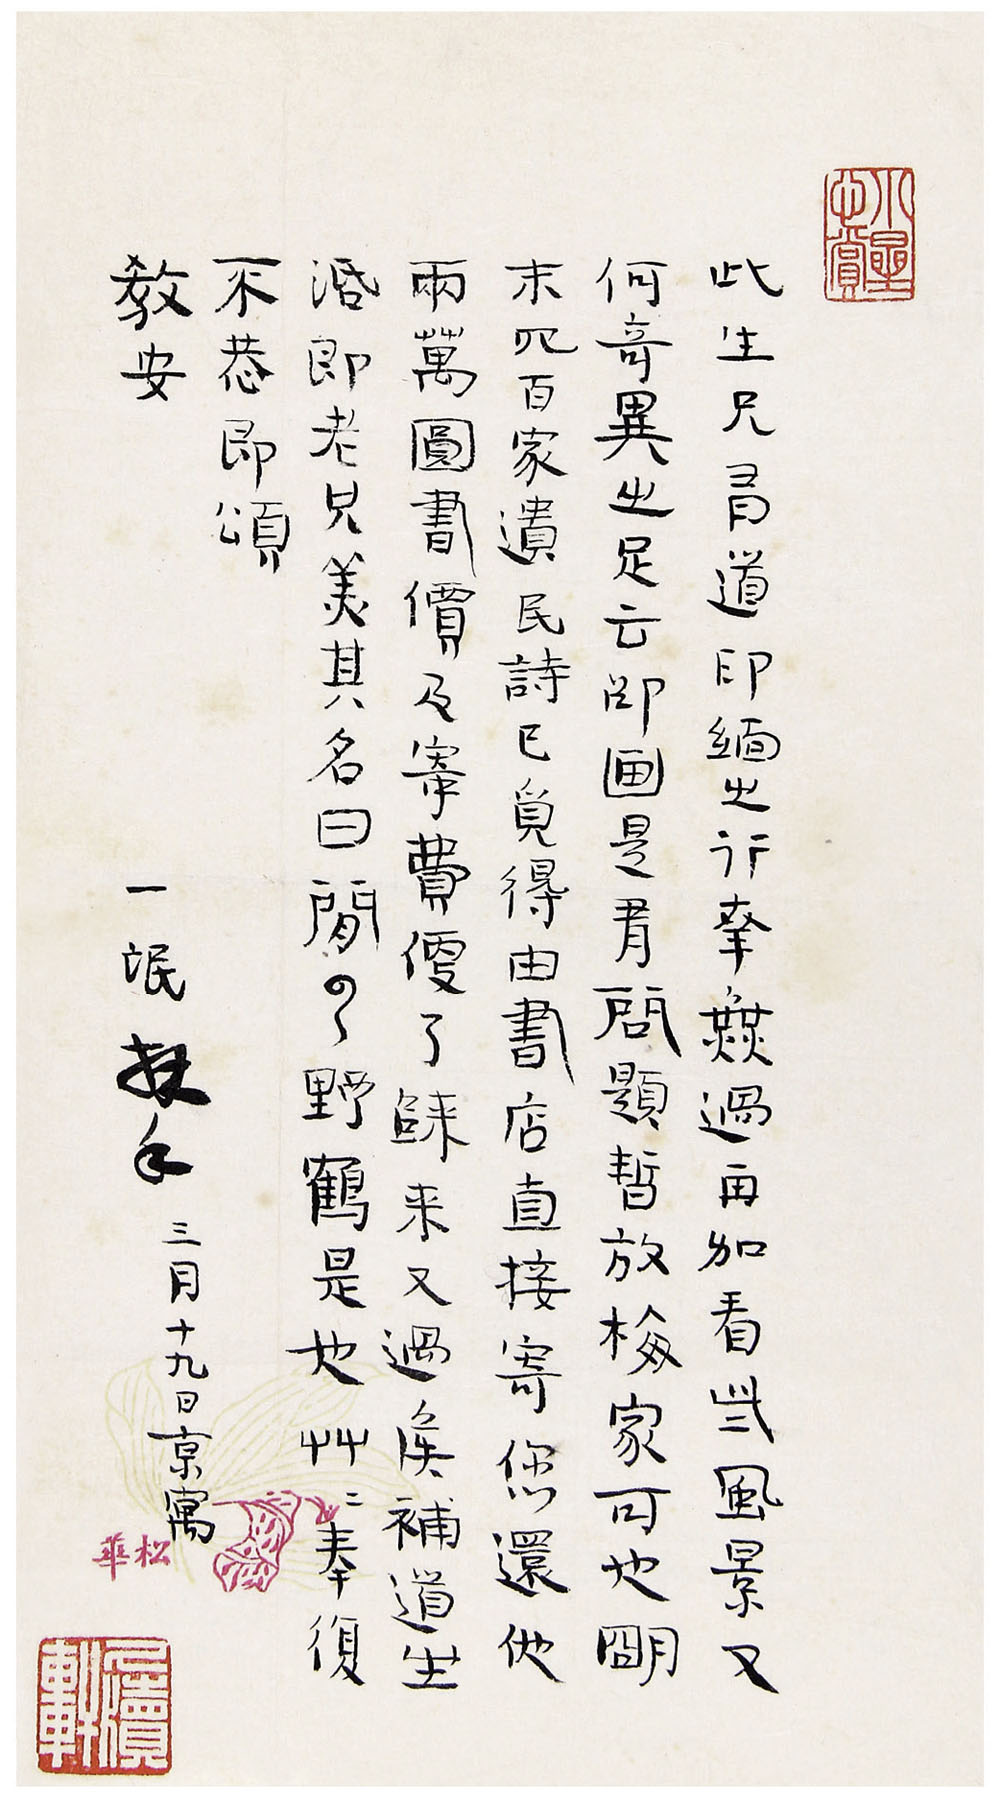 此生兄有道印緬之行幸無過再加看些風景又
何奇異之足云即画是有問題暫放梅家可也明
末四百家遺民詩已覓得由書店直接寄您還他
兩萬圓書價及寄費便了蘇来又過矦補道生
活即老兄美其名曰閒云野鶴是也艸〻奉復
不恭即頌
教安
一氓拜手
三月十九日京寓
松華
尺牘軒